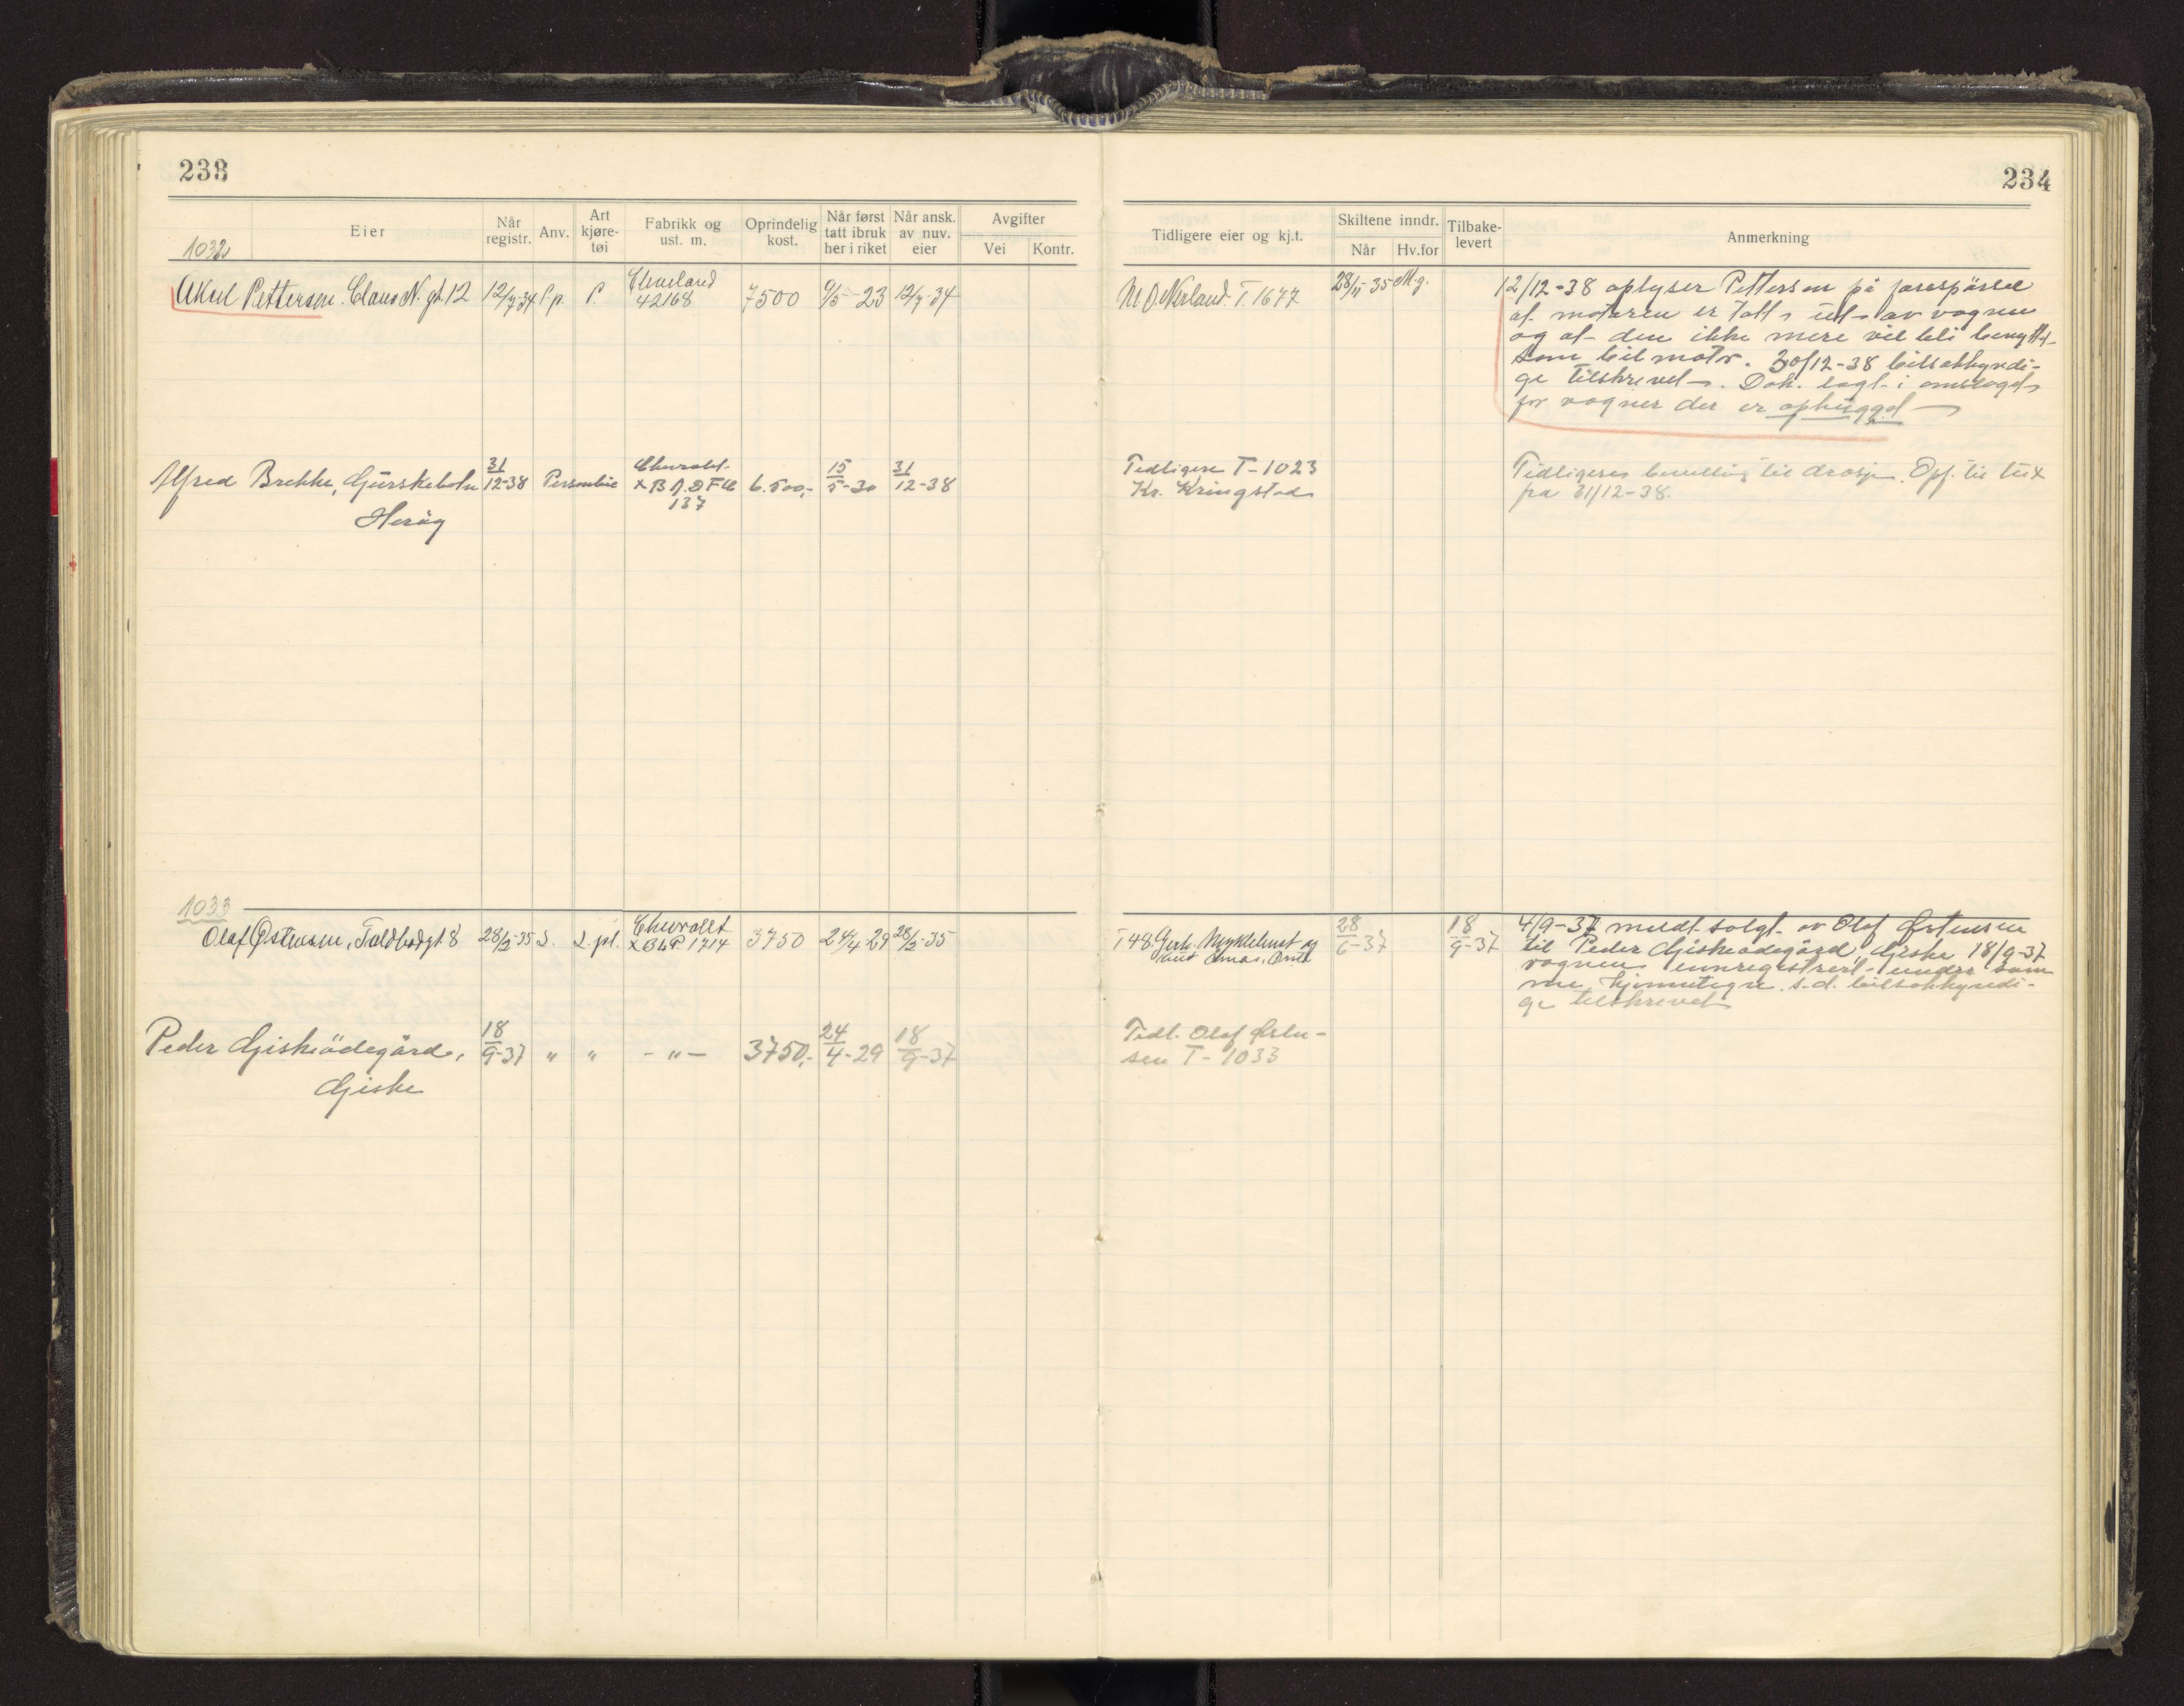 233
234
Eier
Når registr.
Anv.
Art kjøre-tøi
Fabrikk og ust. m.
Oprindelig kost.
Når først tatt i bruk her i riket
Når ansk. av nuv. eier
Avgifter
Vei
Kontr.
Tidligere eier og kj.t.
Skiltene inndr.
Når
Hv.for
Tilbake-levert
Anmerkning
1032
Aksel Pettersen. Claus N. gt. 12 12/7-34 P.p. P. Cleveland 42168 7500 9/5-23 12/7-34
M. O. Nerland. T. 1677 28/11-35 M.g.
12/12-38 oplyser Pettersen på forespørsel
at motoren er tatt ut av vognen
og at den ikke mere vil bli benyttet
som bilmotor. 30/12-38 bilsakkyndi-
ge tilskrevet. Dok. lagt i omslaget
for vogner der er ophugget
Alfred Brekke, Gurskebotn 31/12-38 Personbil Chevrolet 6.500,- 15/5-30 31/12-38
137
Herøy
Tidligere T-1023
Kr. Kringstad
Tidligere bevilling til drosje. Opf. til
fra 31/12-38.
1033
Olaf Østensen, Toldbodgt 8 28/2-35 L. L. pl. Chevrolet 1714 3750 24/4-29 28/2-35
T 48. Gerh. Myklebust og
28/6-37
18/9-37
4/9-37 meldt solgt av Olaf Østensen
til Peder Giskeødegård, Giske 18/9-37
vognen innregistrert under sam-
me kjennetegn. s.d. bilsakkyndi-
ge tilskrevet
Peder Giskeödegård, 18/9-37 " " -"- 3750,- 24/4-29 18/9-37
Giske
Tidl. Olaf Østen-
sen T-1033